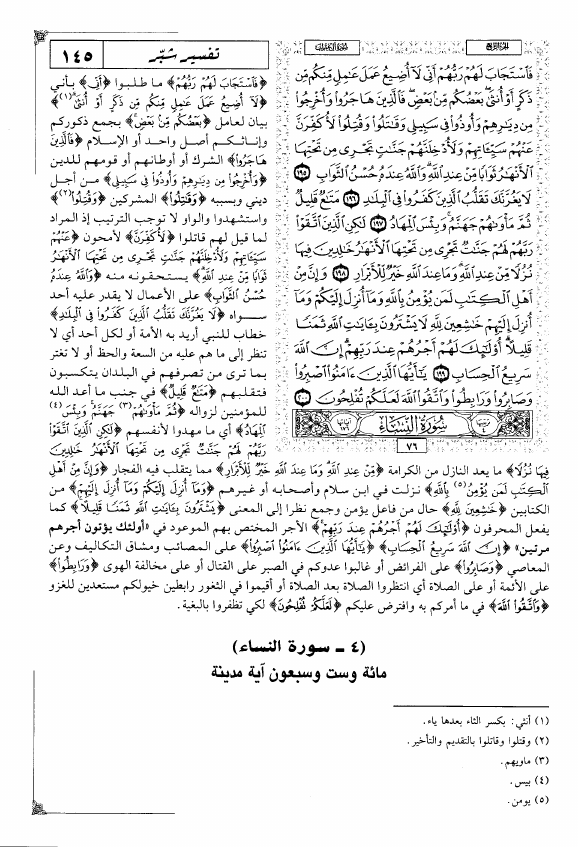 ١٤٥
تفسير شبّر
سورة آل عمران
الجزء الرابع
فَاسْتَجَابَ لَهُمْ رَبُّهُمْ أَنِّي لَا أُضِيعُ عَمَلَ عَامِلٍ مِنْكُمْ مِنْ
ذَكَرٍ أَوْ أُنْثَى بَعْضُكُمْ مِنْ بَعْضٍ فَالَّذِينَ هَاجَرُوا وَأُخْرِجُوا
مِنْ دِيَارِهِمْ وَأُوذُوا فِي سَبِيلِي وَقَاتَلُوا وَقُتِلُوا لَأُكَفِّرَنَّ
عَنْهُمْ سَيِّئَاتِهِمْ وَلَأُدْخِلَنَّهُمْ جَنَّاتٍ تَجْرِي مِنْ تَحْتِهَا
الْأَنْهَارُ ثَوَابًا مِنْ عِنْدِ اللَّهِ وَاللَّهُ عِنْدَهُ حُسْنُ الثَّوَابِ ١٩٥
لَا يَغُرَّنَّكَ تَقَلُّبُ الَّذِينَ كَفَرُوا فِي الْبِلَادِ ١٩٦ مَتَاعٌ قَلِيلٌ
ثُمَّ مَأْوَاهُمْ جَهَنَّمُ وَبِئْسَ الْمِهَادُ ١٩٧ لَكِنِ الَّذِينَ اتَّقَوْا
رَبَّهُمْ لَهُمْ جَنَّاتٌ تَجْرِي مِنْ تَحْتِهَا الْأَنْهَارُ خَالِدِينَ فِيهَا
نُزُلًا مِنْ عِنْدِ اللَّهِ وَمَا عِنْدَ اللَّهِ خَيْرٌ لِلْأَبْرَارِ ١٩٨ وَإِنَّ مِنْ
أَهْلِ الْكِتَابِ لَمَنْ يُؤْمِنُ بِاللَّهِ وَمَا أُنْزِلَ إِلَيْكُمْ وَمَا
أُنْزِلَ إِلَيْهِمْ خَاشِعِينَ لِلَّهِ لَا يَشْتَرُونَ بِآيَاتِ اللَّهِ ثَمَنًا
قَلِيلًا أُولَئِكَ لَهُمْ أَجْرُهُمْ عِنْدَ رَبِّهِمْ إِنَّ اللَّهَ
سَرِيعُ الْحِسَابِ ١٩٩ يَا أَيُّهَا الَّذِينَ آمَنُوا اصْبِرُوا
وَصَابِرُوا وَرَابِطُوا وَاتَّقُوا اللَّهَ لَعَلَّكُمْ تُفْلِحُونَ ٢٠٠
سُورَةُ النِّسَاءِ
٧٦
﴿فَاسْتَجَابَ لَهُمْ رَبُّهُمْ﴾ ما طلبوا ﴿أَنِّي﴾ بأني
﴿لَا أُضِيعُ عَمَلَ عَامِلٍ مِنْكُمْ مِنْ ذَكَرٍ أَوْ أُنْثَى(١)﴾
بيان لعامل ﴿بَعْضُكُمْ مِنْ بَعْضٍ﴾ بجمع ذكوركم
وإناثكم أصل واحد أو الإسلام ﴿فَالَّذِينَ
هَاجَرُوا﴾ الشرك أو أوطانهم أو قومهم للدين
﴿وَأُخْرِجُوا مِنْ دِيَارِهِمْ وَأُوذُوا فِي سَبِيلِي﴾ من أجل
ديني وبسببه ﴿وَقَاتَلُوا﴾ المشركين ﴿وَقُتِلُوا(٢)﴾
واستشهدوا والواو لا توجب الترتيب إذ المراد
لما قيل لهم قاتلوا ﴿لَأُكَفِّرَنَّ﴾ لأمحون ﴿عَنْهُمْ
سَيِّئَاتِهِمْ وَلَأُدْخِلَنَّهُمْ جَنَّاتٍ تَجْرِي مِنْ تَحْتِهَا الْأَنْهَارُ
ثَوَابًا مِنْ عِنْدِ اللَّهِ﴾ يستحقونه منه ﴿وَاللَّهُ عِنْدَهُ
حُسْنُ الثَّوَابِ﴾ على الأعمال لا يقدر عليه أحد
سواه ﴿لَا يَغُرَّنَّكَ تَقَلُّبُ الَّذِينَ كَفَرُوا فِي الْبِلَادِ﴾
خطاب للنبي أريد به الأمة أو لكل أحد أي لا
تنظر إلى ما هم عليه من السعة والحظ أو لا تغتر
بما ترى من تصرفهم في البلدان يتكسبون
فتقلبهم ﴿مَتَاعٌ قَلِيلٌ﴾ في جنب ما أعد الله
للمؤمنين لزواله ﴿ثُمَّ مَأْوَاهُمْ(٣) جَهَنَّمُ وَبِئْسَ(٤)
الْمِهَادُ﴾ أي ما مهدوا لأنفسهم ﴿لَكِنِ الَّذِينَ اتَّقَوْا
رَبَّهُمْ لَهُمْ جَنَّاتٌ تَجْرِي مِنْ تَحْتِهَا الْأَنْهَارُ خَالِدِينَ
فِيهَا نُزُلًا﴾ ما يعد النازل من الكرامة ﴿مِنْ عِنْدِ اللَّهِ وَمَا عِنْدَ اللَّهِ خَيْرٌ لِلْأَبْرَارِ﴾ مما يتقلب فيه الفجار ﴿وَإِنَّ مِنْ أَهْلِ
الْكِتَابِ لَمَنْ يُؤْمِنُ(٥) بِاللَّهِ﴾ نزلت في ابن سلام وأصحابه أو غيرهم ﴿وَمَا أُنْزِلَ إِلَيْكُمْ وَمَا أُنْزِلَ إِلَيْهِمْ﴾ من
الكتابين ﴿خَاشِعِينَ لِلَّهِ﴾ حال من فاعل يؤمن وجمع نظرا إلى المعنى ﴿يَشْتَرُونَ بِآيَاتِ اللَّهِ ثَمَنًا قَلِيلًا﴾ كما
يفعل المحرفون ﴿أُولَئِكَ لَهُمْ أَجْرُهُمْ عِنْدَ رَبِّهِمْ﴾ الأجر المختص بهم الموعود في «أولئك يؤتون أجرهم
مرتين» ﴿إِنَّ اللَّهَ سَرِيعُ الْحِسَابِ﴾ ﴿يَا أَيُّهَا الَّذِينَ آمَنُوا اصْبِرُوا﴾ على المصائب ومشاق التكاليف وعن
المعاصي ﴿وَصَابِرُوا﴾ على الفرائض أو غالبوا عدوكم في الصبر على القتال أو على مخالفة الهوى ﴿وَرَابِطُوا﴾
على الأئمة أو على الصلاة أي انتظروا الصلاة بعد الصلاة أو أقيموا في الثغور رابطين خيولكم مستعدين للغزو
﴿وَاتَّقُوا اللَّهَ﴾ في ما أمركم به وافترض عليكم ﴿لَعَلَّكُمْ تُفْلِحُونَ﴾ لكي تظفروا بالبغية.
(٤ ـ سورة النساء)
مائة وست وسبعون آية مدينة
(١) أنثي: بكسر الثاء بعدها ياء.
(٢) وقتلوا وقاتلوا بالتقديم والتأخير.
(٣) ماويهم.
(٤) بيس.
(٥) يومن.